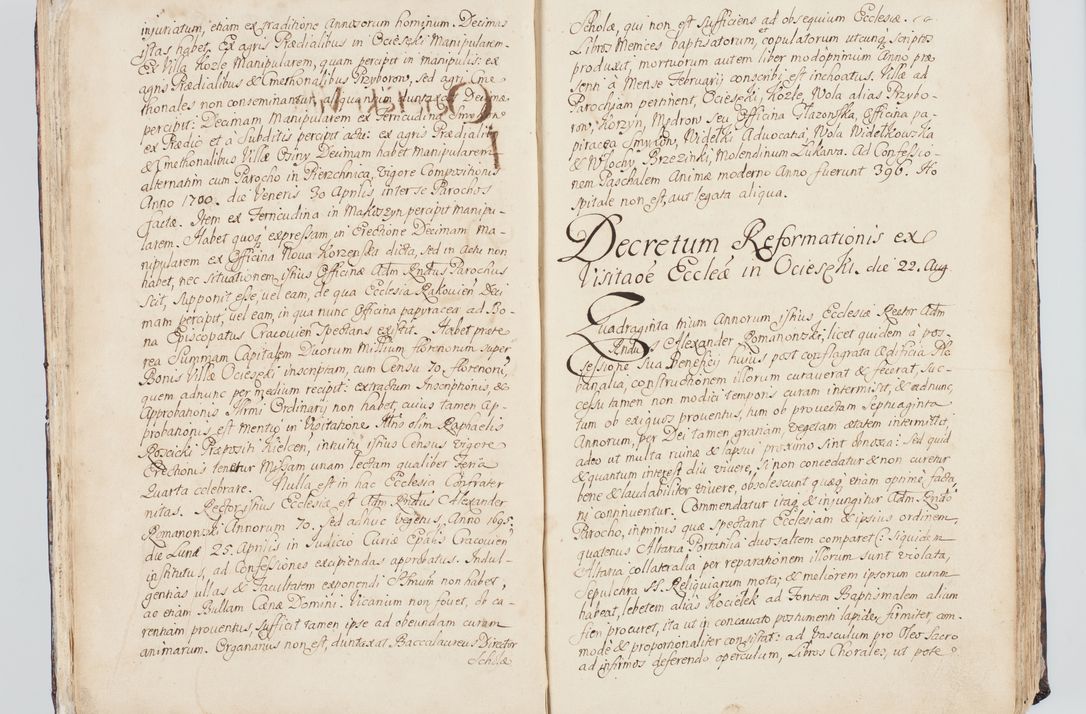 injuriatum, etiam ex traditione Annosorum hominum. Decimas
istas habet. Ex agris Prædialibus in Ocieszki Manipularem.
Ex Villa Kozle Manipularem, quam percipit in manipulis: ex
agris Prædialibus & Cmethonalibus Przyborow, sed agri Cme
thonales non conseminantur,
percipit: Decimam Manipularem ex
ex Prædio et à Subditis percipit actu: ex agris Prædialib9
& Cmethonalibus Villæ Osiny Decimam habet manipularem
alternatim cum Parocho in Pierzchnica, vigore Compositionis
Anno 1700. die Veneris 30 Aprilis inter se Parochos
factæ. Item ex Ferricudina in Makoszyn percipit manipu-
larem. Habet quoq expressam in Erectione Decimam Ma-
nipularem ex Officina Nova Korzenska dicta, sed in actu non
habet, nec situationem istius Officinæ Adm Rndus Parochus
scit, supponit esse, vel eam, de qua Ecclesia Rakovien Deci
mam percipit, vel eam, in qua nunc Officina papyracea ad Bo-
na Episcopatus Cracovien spectans existit. Habet præte
rea Summam Capitalem Duorum Millium florenorum super
Bonis Villæ Ocieszki inscriptam, cum Censu 70 florenoru,
quem adhunc per medium recipit: extractum Inscriptionis, &
Approbationis Illrmi Ordinarij non habet, cuius tamen Ap-
probationis, est mentio in Visitatione Illris olim Raphaelis
Præpositi Kielcen, intuitu istius Census vigore
Erectionis tenetur Missam unam lectam qualibet Feria
Quarta celebrare. Nulla est in hac Ecclesia Confrater
nitas. Rector istius Ecclesiæ est Adm Rndus Alexander
Romanonski Annorum 70. sed adhuc vegetus, Anno 1695.
die Lunæ 25. Aprilis in Judicio Curiæ Epalis Cracovien
institutus, ad Confessiones excipiendas approbatus. Indul-
gentias ullas & Facultatem exponendi Ssmum non habet,
ac etiam Bullam Cænæ Domini. Vicarium non fovet, ob ca-
rentiam proventus, sufficit tamen ipse ad obeundam curam
animarum. Organarius non est, duntaxat Baccalaureus Director
Scholæ
Scholæ, qui non est sufficiens ad obsequium Ecclesiæ.
Libros Metrices baptisatorum, copulatorum utcunq scriptos
produxit, mortuorum autem liber modoprimum Anno præ
senti à Mense Februarij conscribi est inchoatus. Villæ ad
Parochiam pertinent, Ocieszki, Kozle, Wola alias Przybo-
row, Korzyn, Mędrow seu Officina Głazonska, Officina pa-
piracea Smykow, Widełki Advocatia, Wola Widełkowska
& Włochy, Brzezinki, Molendinum Lukawa. Ad Confessio-
nem Paschalem Animæ moderno Anno fuerunt 396. Ho
spitale non est, aut legata aliqua.
Decretum Reformationis ex
Visitaoë Eccleæ in Ocieszki. die 22. Aug
Quadraginta trium Annorum istius Ecclesiæ Rector Adm
Rndus Alexander Romanonski, licet quidem à pos-
sessione sua Beneficij huius post conflagrata ædificia Ple
banalia, constructionem illorum curaverat & fecerat, suc-
cessu tamen non modici temporis curam intermisit, & adhunc
tum ob exiguos proventus, tum ob provectam Septuaginta
Annorum, per Dei tamen gratiam, vegetam ætatem intermittit,
adeo ut multa ruinæ & lapsui proximo sint obnoxia: sed quid
& quantum interest diu vivere, si non concedatur & non curetur
bene & laudabiliter vivere, obsolescunt quæq etiam optimè facta,
ni continuentur. Commendatur itaq & injungitur Adm Rndo
Parocho, inprimis quæ spectant Ecclesiam & ipsius ordinem,
quatenus Altaria Portatilia duo saltem comparet (: siquidem
Altaria collateralia per reparationem illorum sunt violata,
Sepulchra SS. Reliquiarum mota; & meliorem ipsorum curam
habeat, lebetem alias Kociełek ad Fontem Baptismalem alium
fieri procuret, ita ut in concavato postumenti lapide, firmiter, com-
modè & proportionaliter consistat: ad Vasculum pro Oleo Sacro
ad infirmos deferendo operculum, Libros Chorales, ut pote